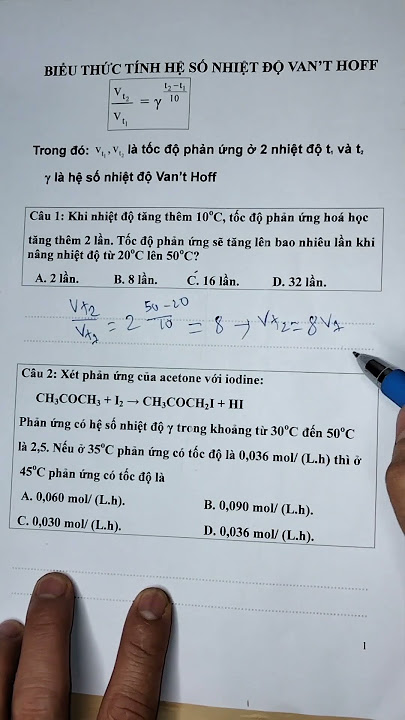 BIỂU THỨC TÍNH HỆ SỐ NHIỆT ĐỘ VAN'T HOFF
V_{t₂}/V_{t₁} = γ^{(t₂−t₁)/10}
Trong đó: v_{t₁}, v_{t₂} là tốc độ phản ứng ở 2 nhiệt độ t₁ và t₂
γ là hệ số nhiệt độ Van't Hoff
Câu 1: Khi nhiệt độ tăng thêm 10°C, tốc độ phản ứng hoá học
tăng thêm 2 lần. Tốc độ phản ứng sẽ tăng lên bao nhiêu lần khi
nâng nhiệt độ từ 20°C lên 50°C?
A. 2 lần. B. 8 lần. C. 16 lần. D. 32 lần.
Vt2/Vt1 = 2^{(50-20)/10} = 8 → Vt2 = 8V1
Câu 2: Xét phản ứng của acetone với iodine:
CH₃COCH₃ + I₂ → CH₃COCH₂I + HI
Phản ứng có hệ số nhiệt độ γ trong khoảng từ 30°C đến 50°C
là 2,5. Nếu ở 35°C phản ứng có tốc độ là 0,036 mol/ (L.h) thì ở
45°C phản ứng có tốc độ là
A. 0,060 mol/ (L.h). B. 0,090 mol/ (L.h).
C. 0,030 mol/ (L.h). D. 0,036 mol/ (L.h).
1